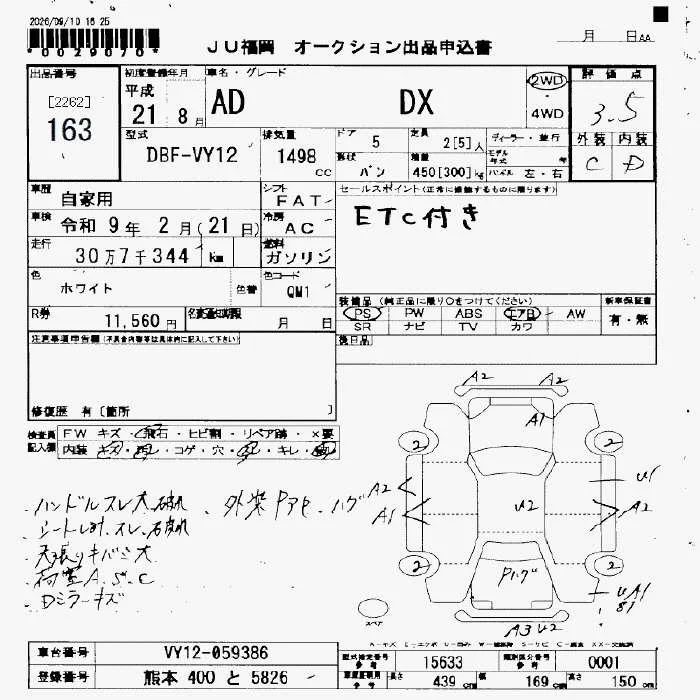 2026/09/10 16 25
*0029070*
JU福岡 オークション出品申込書
月 日AA
出品番号 初度登録年月 車名・グレード 評価点
[2262] 平成 2WD
163 21 8月 AD DX 4WD 3.5
外装 内装
C D
型式 排気量 ドア 定員 ディーラー・並行
DBF-VY12 1498 CC 5 2[5]人 モデル年式 年
形状 積量 ハンドル 左・右
バン 450[300]kg
車歴 シフト セールスポイント(正常に機能するものに限ります)
自家用 FAT
車検 冷房 ETC付き
令和 9年 2月(21日) AC
走行 燃料
30万7千344 km ガソリン
色 色替 色コード
ホワイト QM1
装備品(純正品に限り○をつけてください) 新車保証書
R券 11,560円 名変期限 月 日
PS PW ABS エアB AW 有・無
SR ナビ TV カワ
注意事項申告欄(不具合内容等は具体的に記入して下さい) 後日品
修復歴 有〔箇所 〕
検査員記入欄 FW キズ・飛石・ヒビ割・リペア跡・×要
内装 キズ・汚レ・コゲ・穴・・キレ・
・ハンドルスレ大破れ ・外装Pアセ・ハゲ
・シート
・天張りキバミ大
・荷室A.S.C
・Dミラーキズ
A2 A2
A1
2 2
A2 U1
A1 U2 A2
2 2
Pハゲ UA1
S1
スペア
A3 U2
A-キズ E-エクボ U-凹み W-補修跡 S-サビ C-腐食 XX-交換済
車台番号 VY12-059386
登録番号 熊本 400 と 5826
型式指定番号 参考 15633 類別区分番号 参考 0001
車検証期用 参考 長さ 439 cm 幅 169 cm 高さ 150 cm